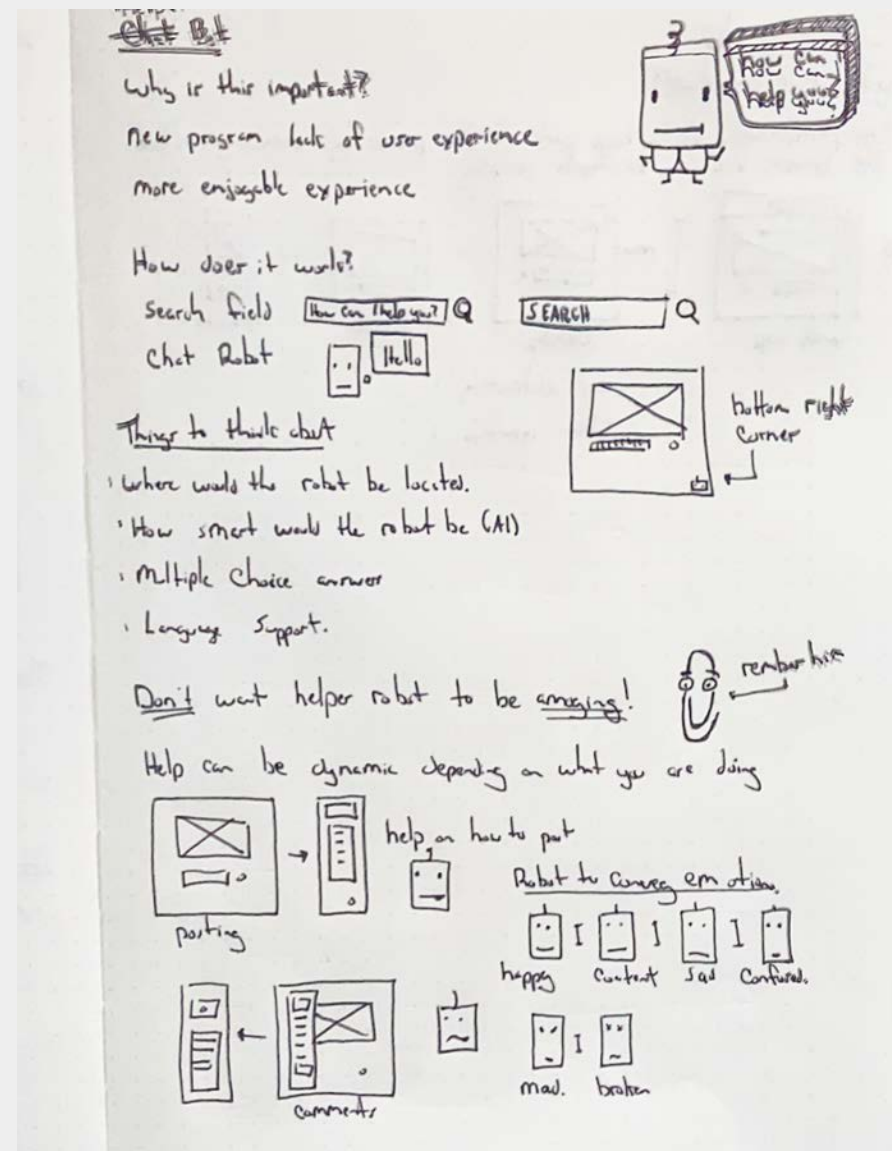 Chat Bot
how can
how can
help you?
help you?
Why is this important?
new program lack of user experience
more enjoyable experience
How does it work?
Search field
How Can I help you?
SEARCH
Chat Robot
Hello
bottom right
corner
Things to think about
Where would the robot be located.
How smart would the robot be (AI)
Multiple Choice answer
Language Support.
Don't want helper robot to be annoying!
Help can be dynamic depending on what you are doing
help on how to post
posting
Robot to convey emotion.
happy
Content
Sad
Confused.
mad.
broken
comments